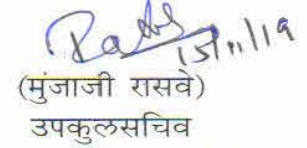 15/11/19
(मुंजाजी रासवे)
उपकुलसचिव